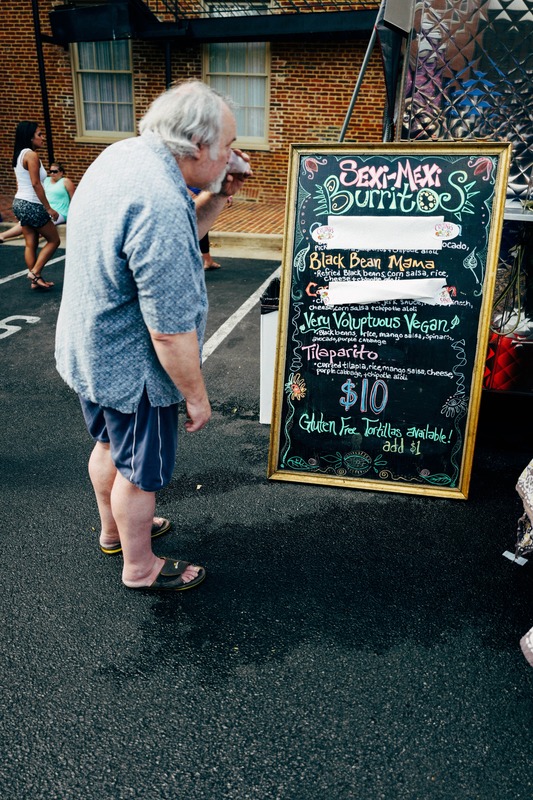 SEXi-MEXi
BurritoS
Black Bean Mama
•Refried Black beans, corn salsa, rice,
cheese + chipotle aioli
cheese, corn salsa + chipotle aioli
Very Voluptuous Vegan
•Black beans, rice, mango salsa, spinach,
avocado, purple cabbage
Tilaparito
•curried tilapia, rice, mango salsa, cheese,
purple cabbage, + chipotle aioli
$10
Gluten Free Tortillas available!
add $1